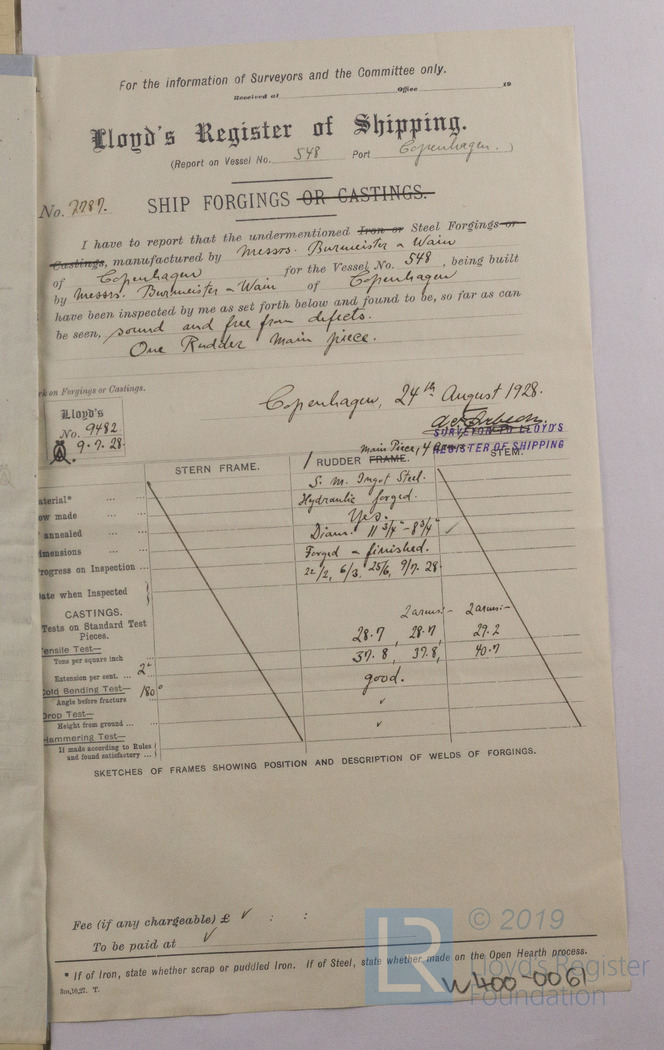 For the information of Surveyors and the Committee only.
Received at Office 19
Lloyd's Register of Shipping.
(Report on Vessel No. 548 Port Copenhagen.)
No. 7787. SHIP FORGINGS OR CASTINGS.
I have to report that the undermentioned Iron or Steel Forgings or
Castings, manufactured by Messrs. Burmeister & Wain
of Copenhagen for the Vessel No. 548, being built
by Messrs. Burmeister & Wain of Copenhagen
have been inspected by me as set forth below and found to be, so far as can
be seen, sound and free from defects.
One Rudder Main piece.
k on Forgings or Castings.
Copenhagen, 24th August 1928.
Lloyd's
No. 9482
9.7.28
SURVEYOR TO LLOYD'S
REGISTER OF SHIPPING
Main Piece, 4 arms
STERN FRAME. 1 RUDDER FRAME. STEM.
aterial* ... ... S. M. Ingot Steel.
ow made ... ... Hydraulic forged.
annealed ... ... Yes.
imensions ... ... Diam. 11 3/4" - 8 3/4" ✓
rogress on Inspection ... Forged & finished.
ate when Inspected 22/2, 6/3, 25/6, 9/7.28
CASTINGS.
Tests on Standard Test
Pieces. 2 arms:- 2 arms:-
ensile Test—
Tons per square inch 28.7, 28.7, 29.2
Extension per cent. ... 2" 37.8, 37.8, 40.7
old Bending Test— 180° good.
Angle before fracture
Drop Test— ✓
Height from ground ... ...
ammering Test— ✓
If made according to Rules
and found satisfactory ...
SKETCHES OF FRAMES SHOWING POSITION AND DESCRIPTION OF WELDS OF FORGINGS.
Fee (if any chargeable) £ ✓ : :
To be paid at ✓
* If of Iron, state whether scrap or puddled Iron. If of Steel, state whether made on the Open Hearth process.
W400-0061
LR
© 2019
Lloyd's Register
Foundation